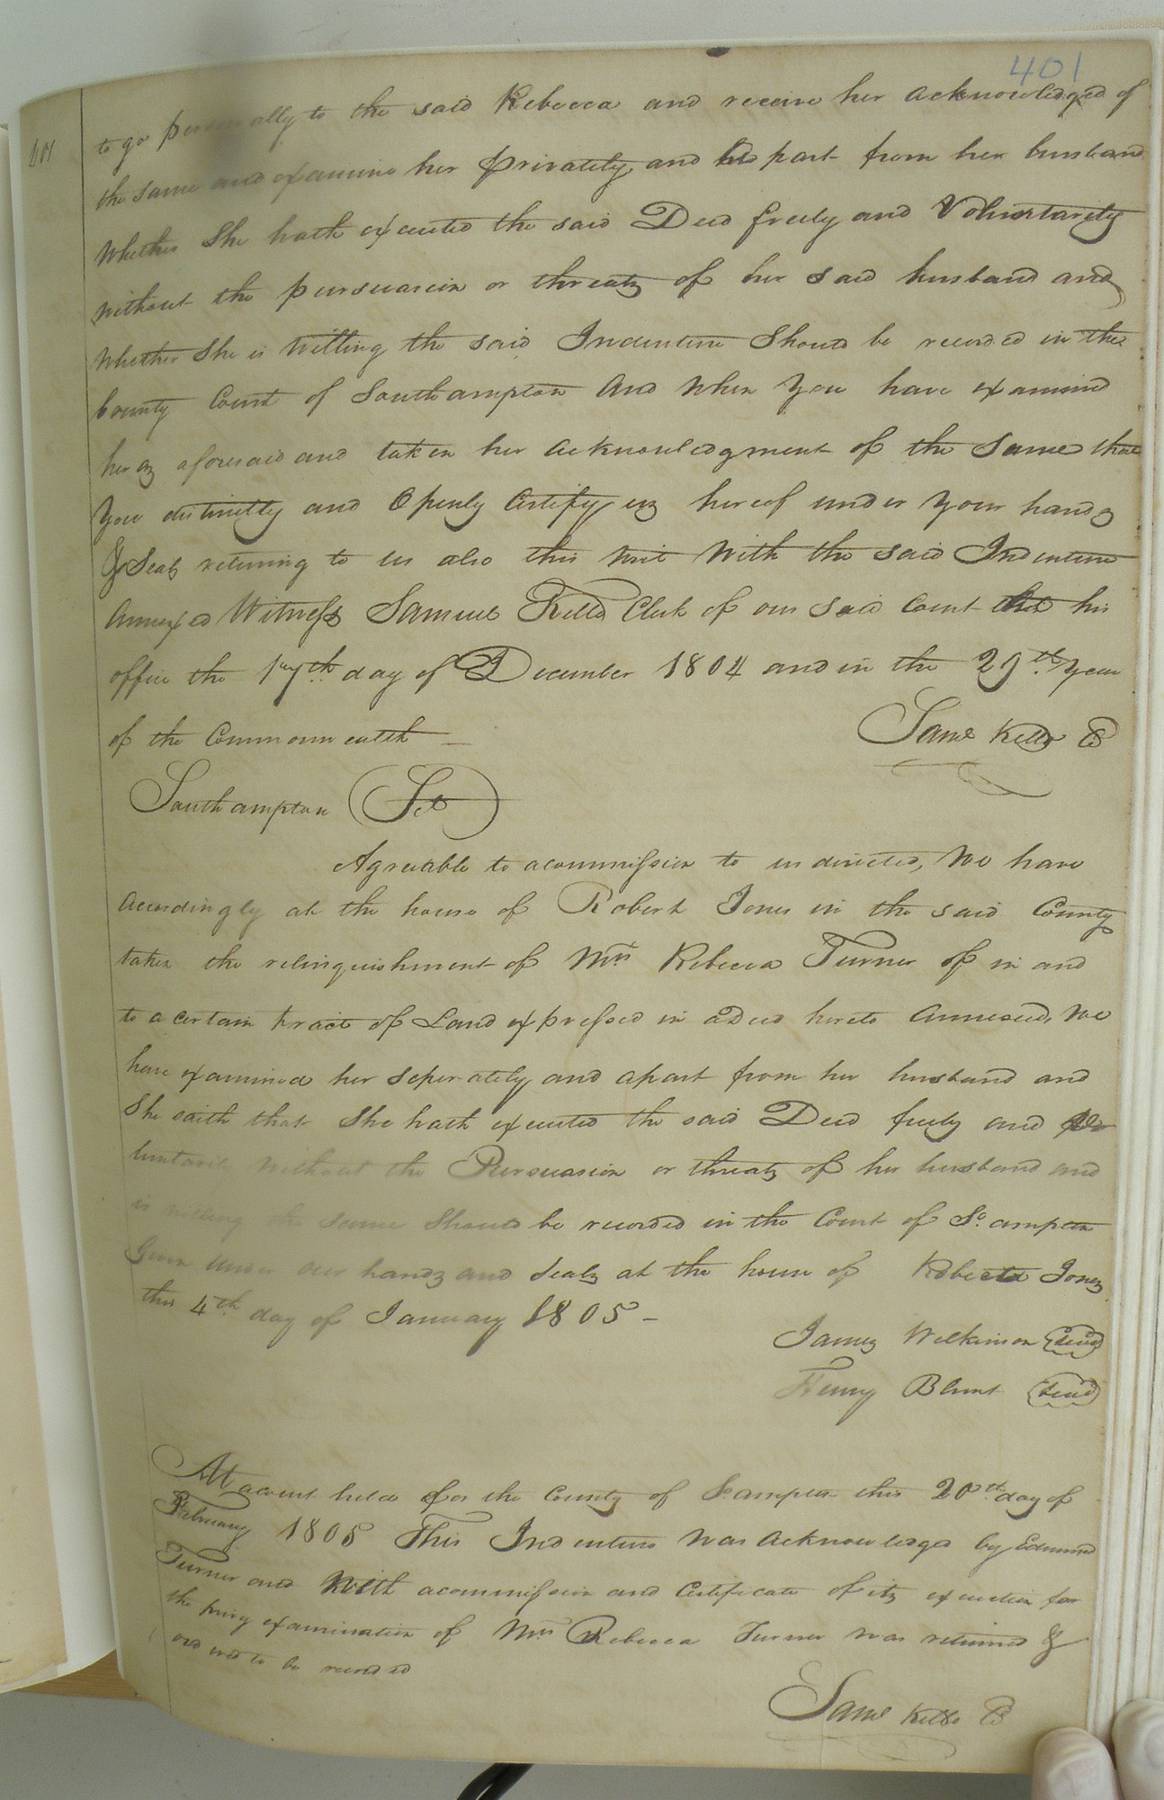 401
401
to go personally to the said Rebecca and receive her acknowledged of
the same and examine her privately and apart from her husband
whether She hath executed the said Deed freely and Voluntarily
without the pursuasion or threats of her said husband and
whether She is Willing the said Indenture Should be recorded in the
County Court of Southampton And when you have examined
her as aforesaid and taken her acknowledgment of the Same that
you distinctly and Openly Certify us hereof under your hands
& Seals returning to us also this writ With the said Indenture
annexed Witness Samuel Kello Clerk of our said Court at his
office the 17th day of December 1804 and in the 29th year
of the Commonwealth —
Saml Kello CC
Southampton Sct
Agreeable to a commission to us directed, We have
accordingly at the house of Robert Jones in the said County
taken the relinquishment of Mrs Rebecca Turner of in and
to a certain tract of Land expressed in a Deed hereto Annexed, We
have examined her seperately and apart from her husband and
She saith that She hath executed the said Deed freely and vo
luntarily Without the Pursuasion or threats of her husband and
is willing the same Should be recorded in the Court of So. ampton
Given under our hands and Seals at the house of Roberts Jones
this 4th day of January 1805 —
James Wilkinson Seal
Henry Blunt Seal
At a court held for the County of So. ampton this 20th day of
February 1805 This Indenture was acknowledged by Edmund
Turner and With a commission and Certificate of its execution for
the privy examination of Mrs Rebecca Turner was returned &
ordered to be recorded
Saml Kello CC